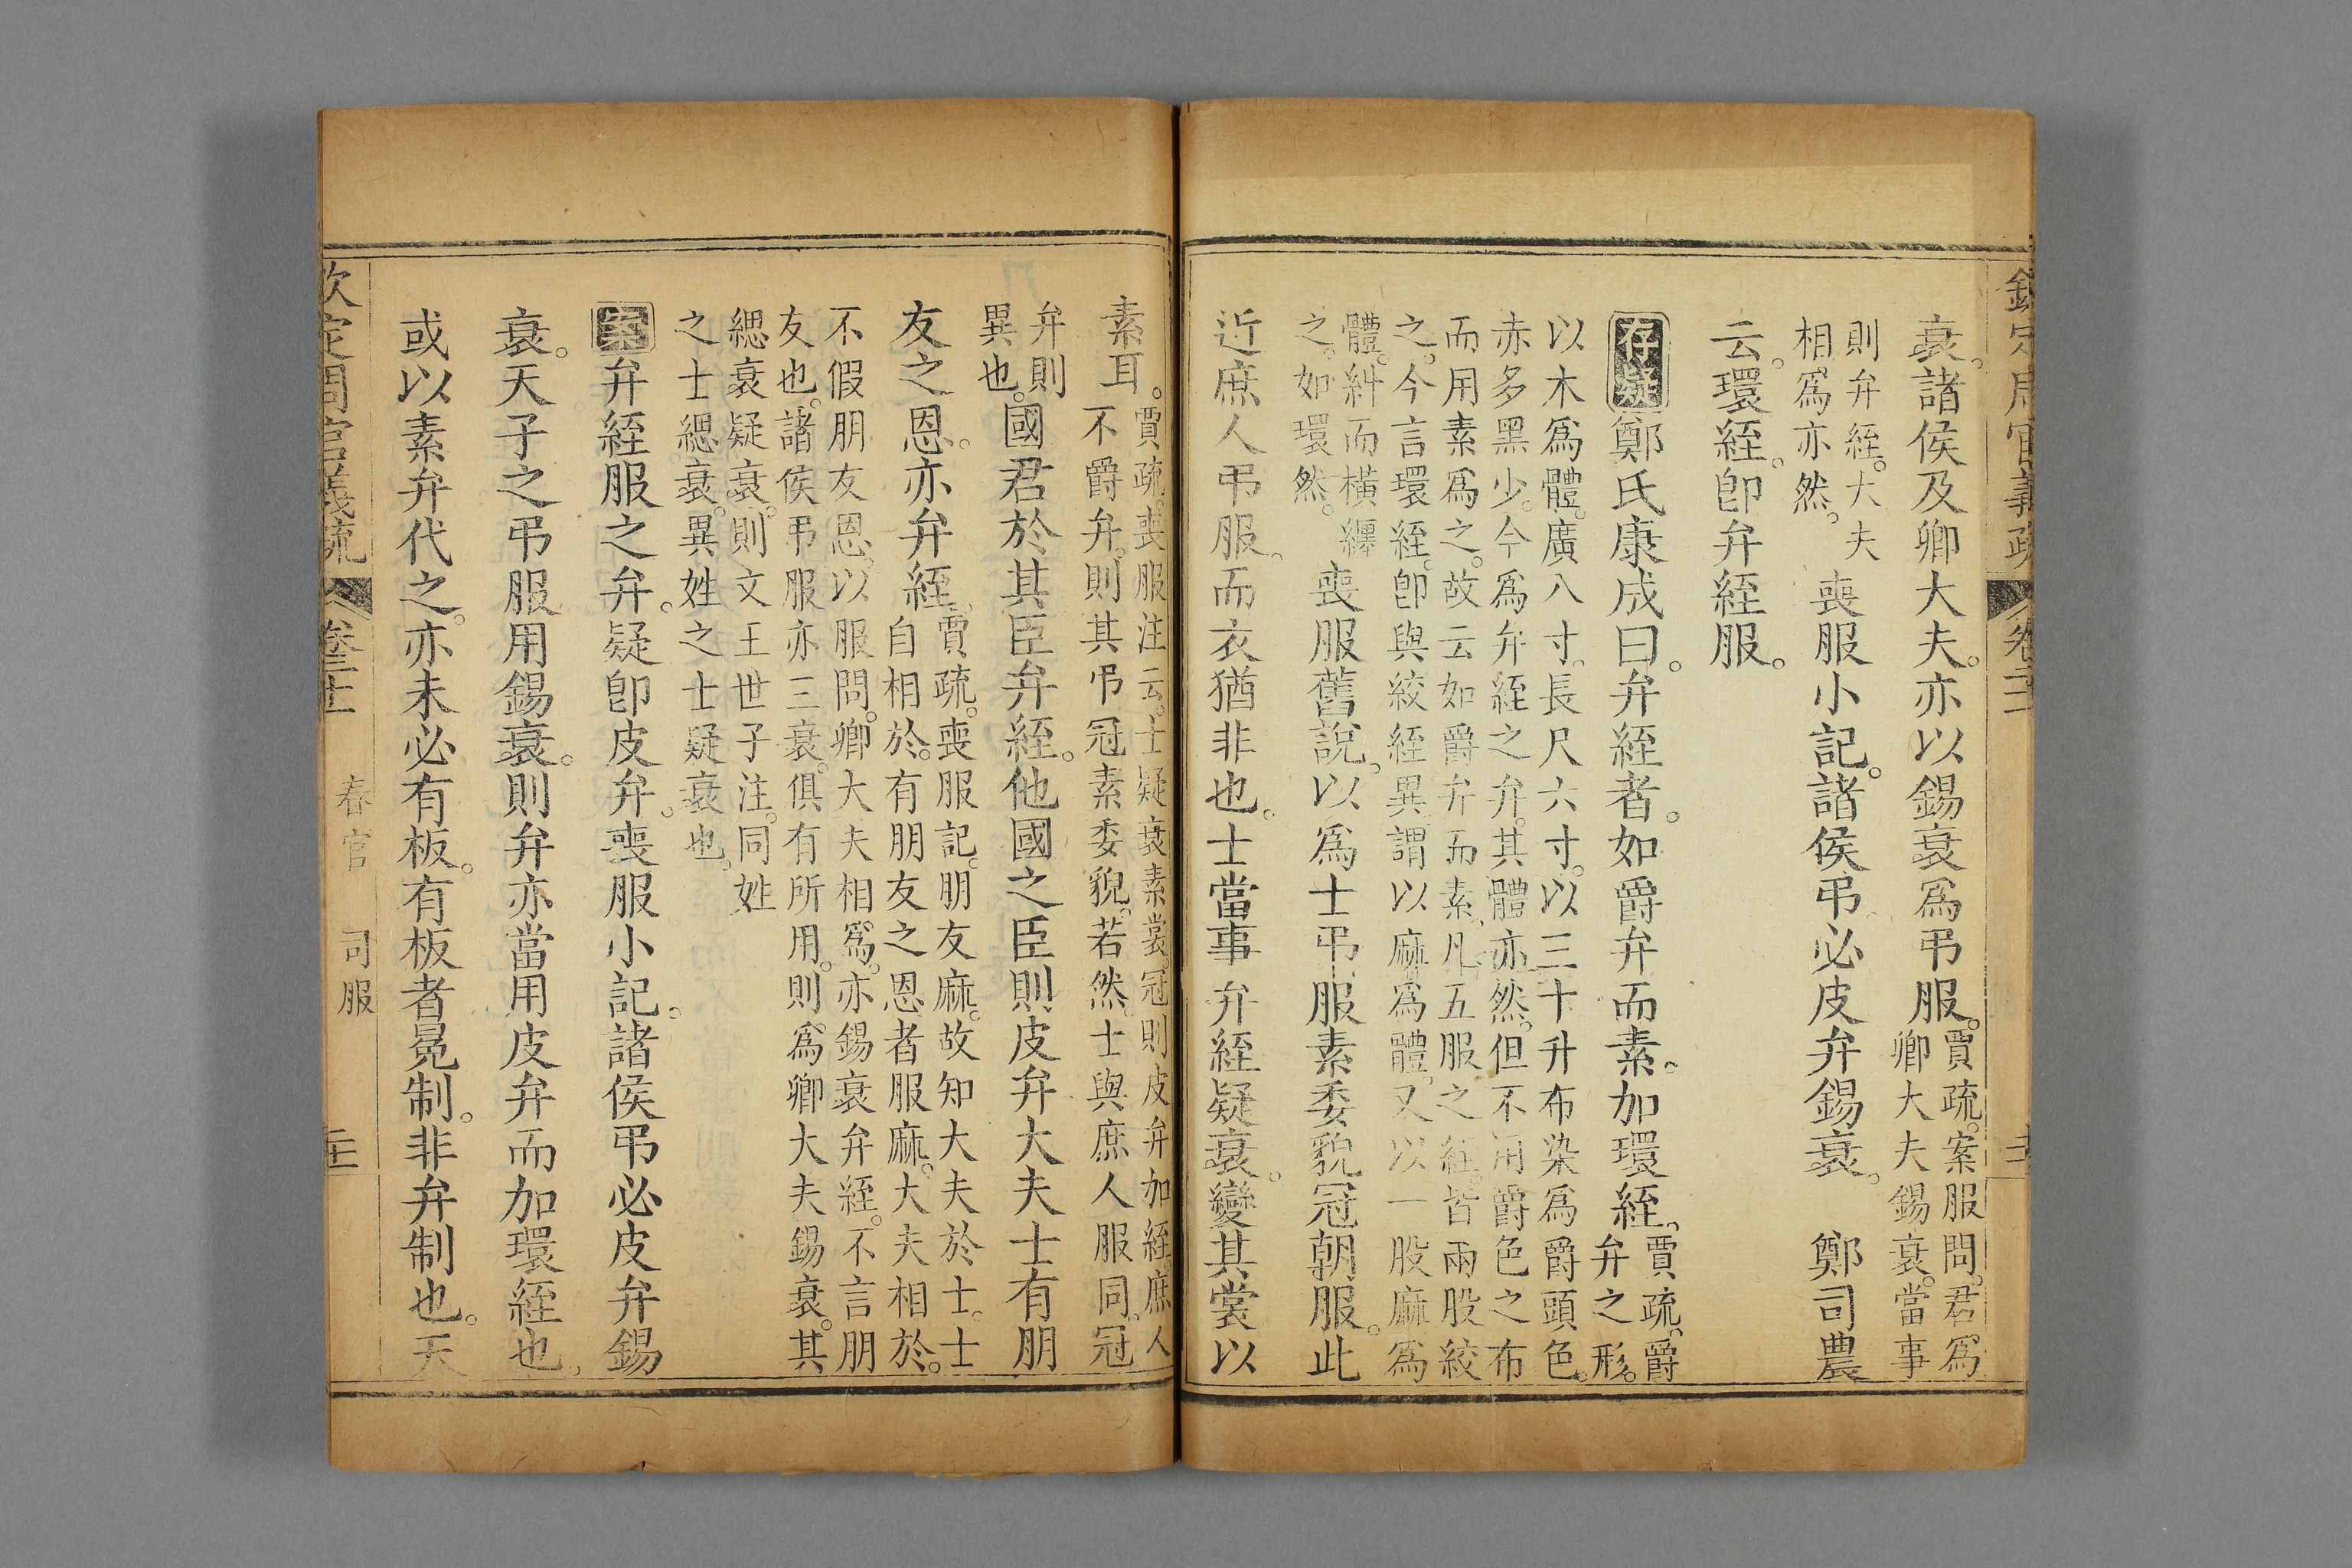 衰。諸侯及卿大夫。亦以錫衰爲弔服。
賈疏。案服問。君爲
卿大夫錫衰。當事
則弁絰。大夫
相爲亦然。
喪服小記。諸侯弔必皮弁錫衰。　鄭司農
云。環絰。卽弁絰服。
存疑鄭氏康成曰。弁絰者。如爵弁而素。加環絰。
賈疏。爵
弁之形。
以木爲體。廣八寸。長尺六寸。以三十升布染爲爵頭色。
赤多黑少。今爲弁絰之弁。其體亦然。但不用爵色之布
而用素爲之。故云如爵弁而素。凡五服之絰。皆兩股絞
之。今言環絰。卽與絞絰異。謂以麻爲體。又以一股麻爲
體。糾而橫纏
之。如環然。
喪服舊說。以爲士弔服素委貌冠朝服。此
近庶人弔服。而衣猶非也。士當事弁絰疑衰。變其裳以
素耳。
賈疏。喪服注云。士疑衰素裳。冠則皮弁加絰。庶人
不爵弁。則其弔冠素委貌。若然。士與庶人服同。冠
弁則
異也。
國君於其臣弁絰。他國之臣則皮弁大夫士有朋
友之恩。亦弁絰。
賈疏。喪服記。朋友麻。故知大夫於士。士
自相於。有朋友之恩者服麻。大夫相於。
不假朋友恩。以服問。卿大夫相爲。亦錫衰弁絰。不言朋
友也。諸侯弔服亦三衰。俱有所用。則爲卿大夫錫衰。其
緦衰疑衰。則文王世子注。同姓
之士緦衰。異姓之士疑衰也。
案弁絰服之弁。疑卽皮弁。喪服小記。諸侯弔必皮弁錫
衰。天子之弔服用錫衰。則弁亦當用皮弁而加環絰也。
或以素弁代之。亦未必有板。有板者冕制。非弁制也。天
欽定周官義疏
春官　司服